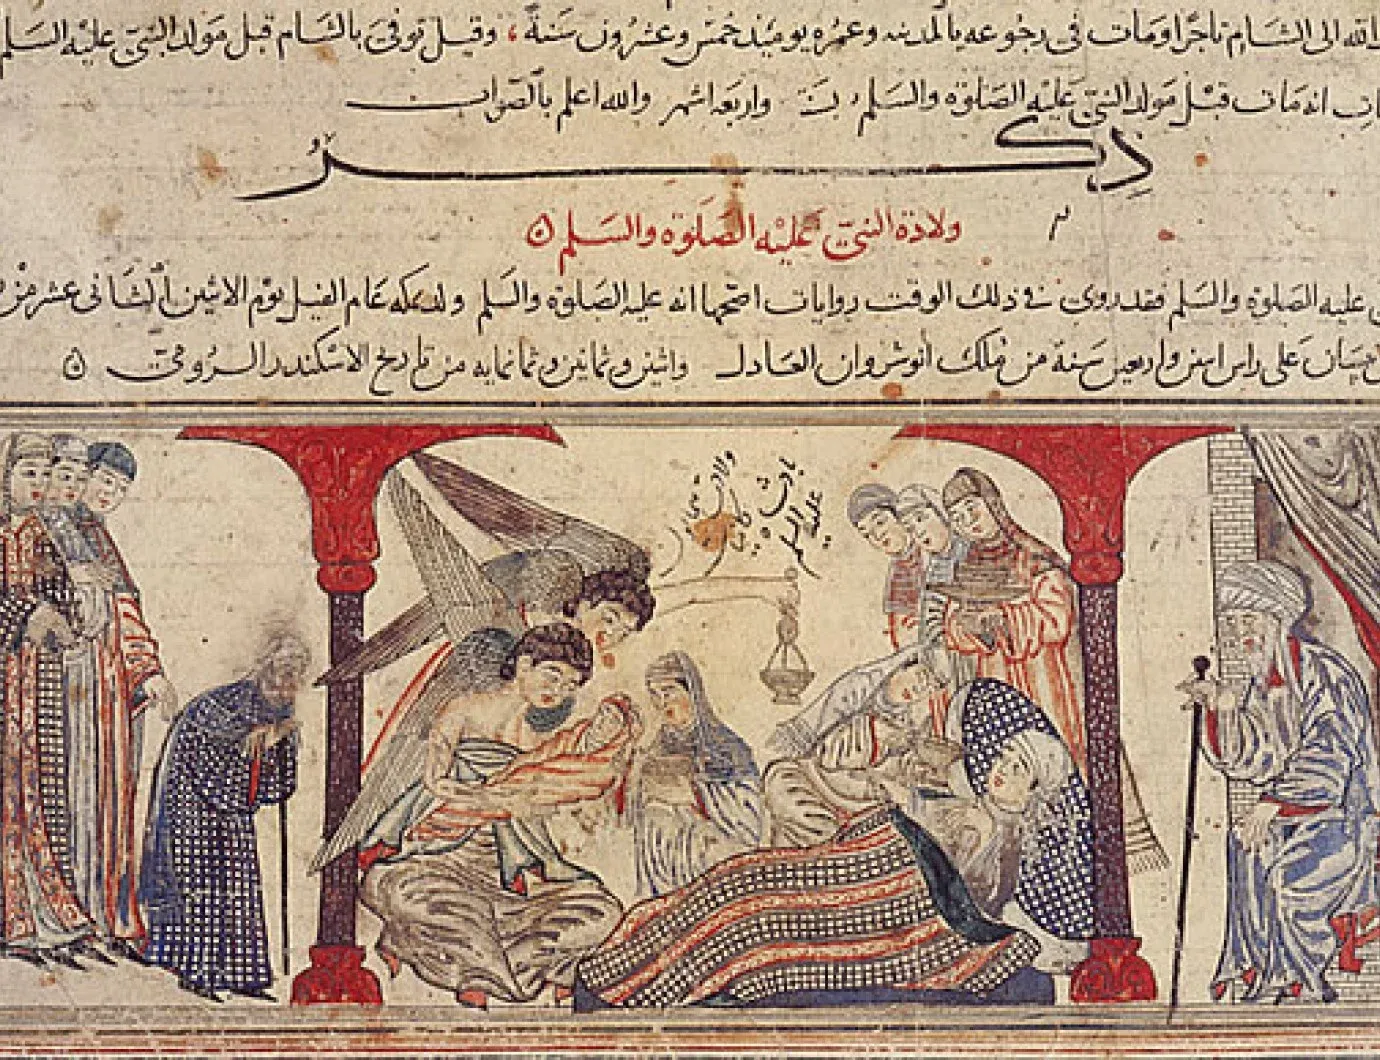 الله الى الشام تاجرا ومات فى رجوعه بالمدينه وعمره يوميذ خمس وعشرون سنة، وقيل توفى بالشام قبل مولد النبى عليه السلم
انه مات قبل مولد النبى عليه الصلوة والسلم واربعة اشهر والله اعلم بالصواب
ذكر
ولادة النبى عليه الصلوة والسلم
عليه الصلوة والسلم فقد روى فى ذلك الوقت روايات اصحها انه عليه الصلوة والسلم ولد بمكه عام الفيل يوم الاثنين الثانى عشر من
على راس اثنين واربعين سنة من ملك انوشروان العادل واثنين وثمانين وثمانمايه من تاريخ الاسكندر الرومى
عليه السلم